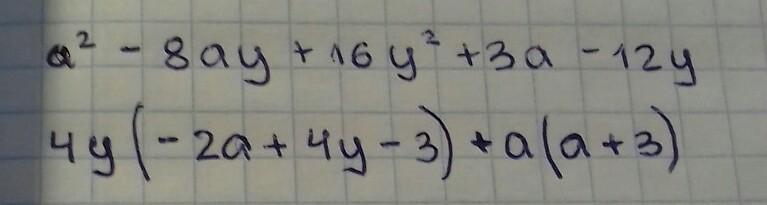 a² - 8ay + 16y² + 3a - 12y
4y(-2a + 4y - 3) + a(a + 3)